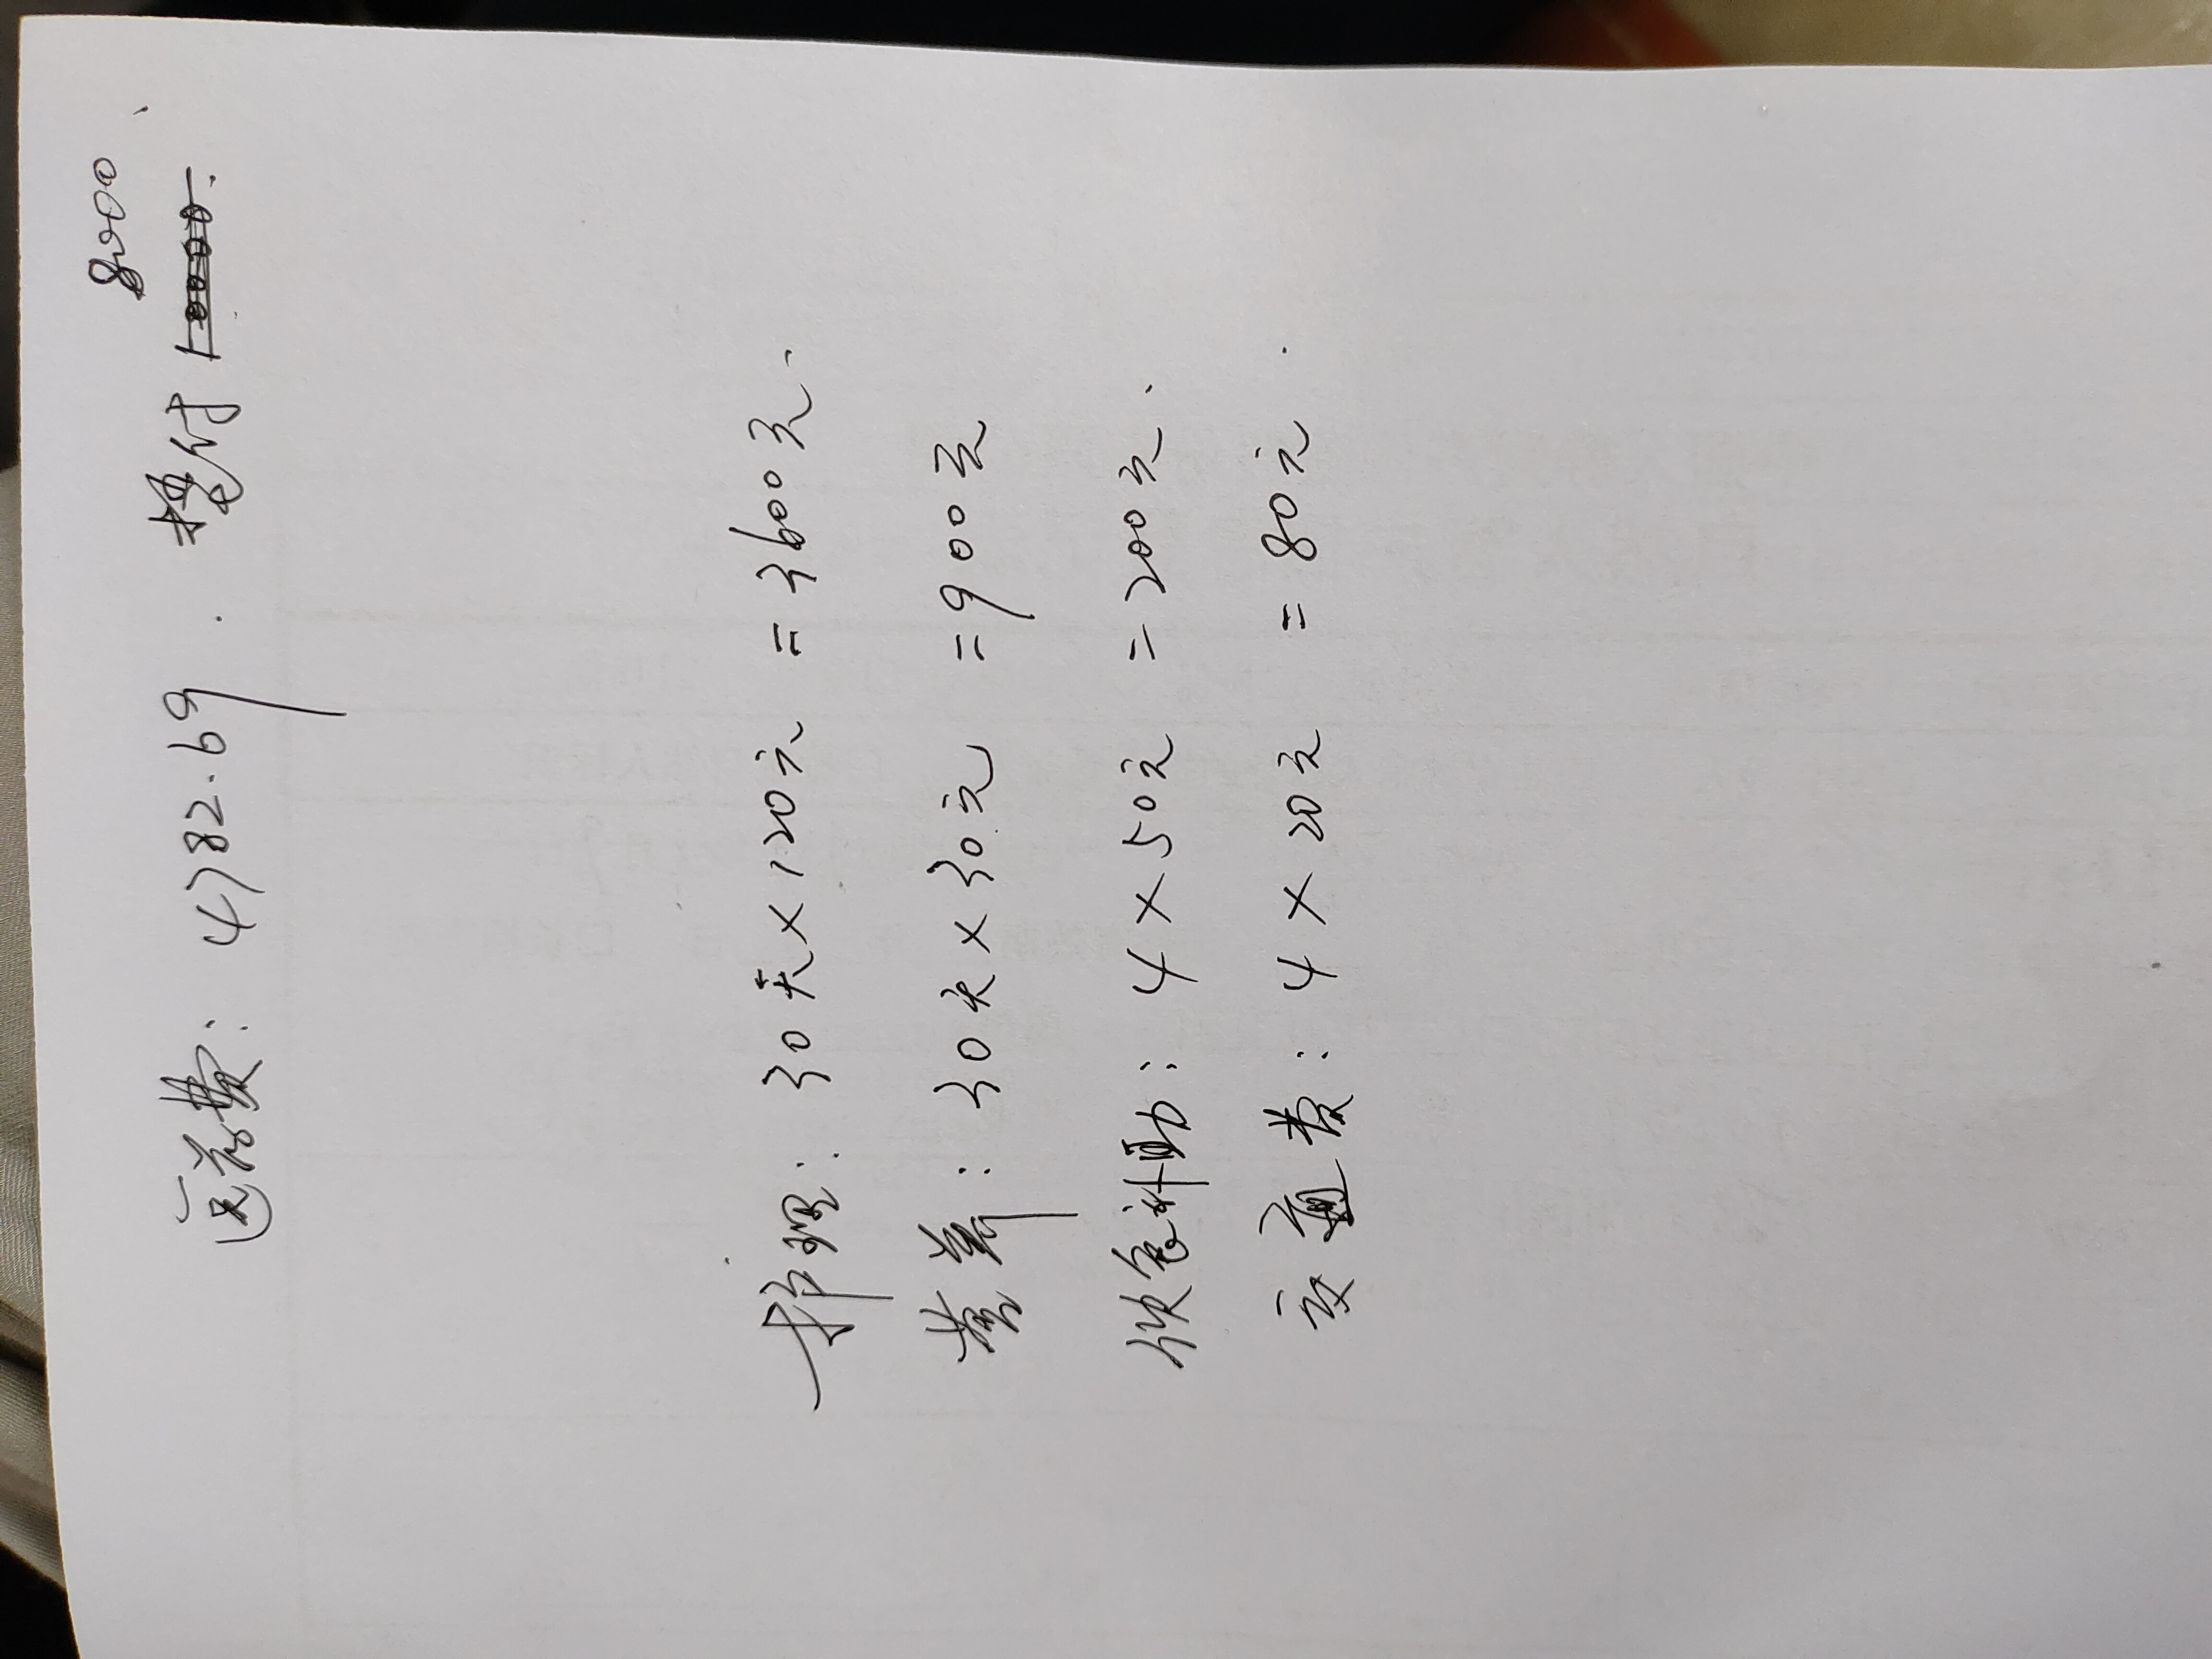 8000
医药费：4782.69. 垫付
护理：30天×120元=3600元.
营养：30天×30元=900元
伙食补助：4×50元=200元.
交通费：4×20元=80元.